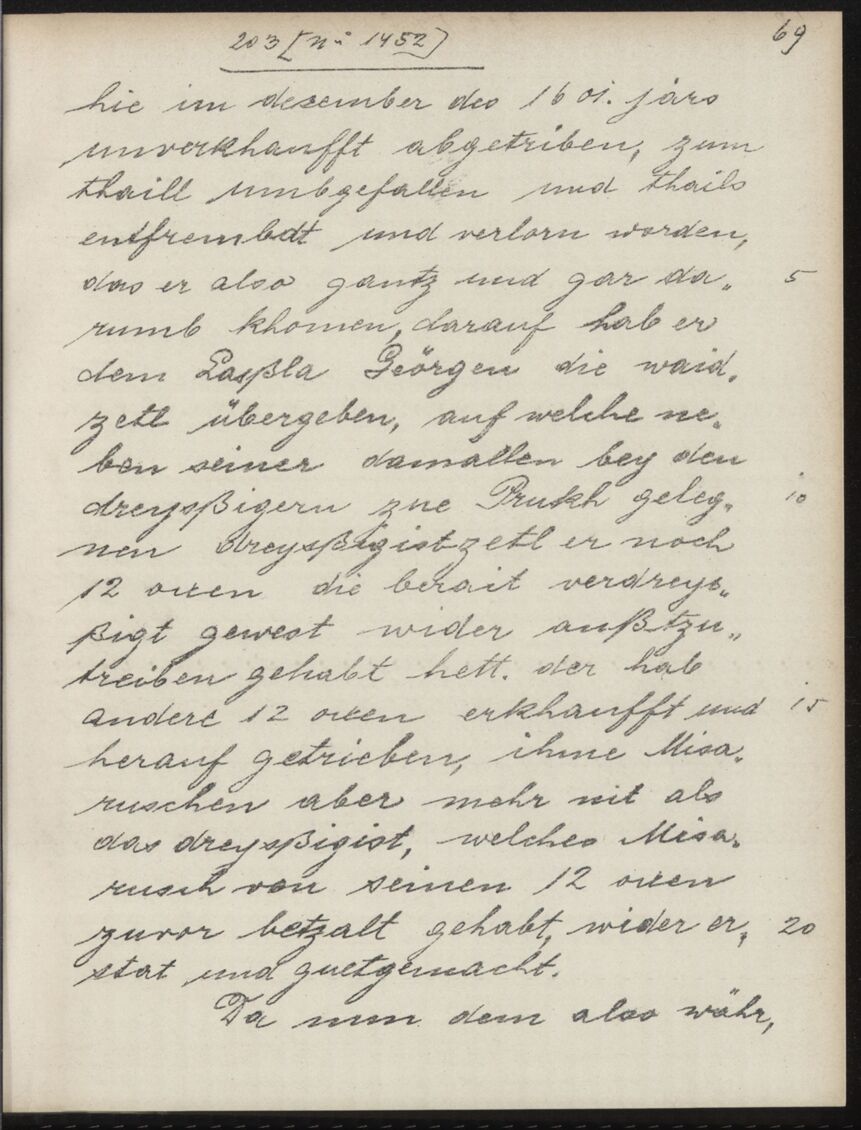 203 [N° 1452]
69
hie im dezember des 1601. jars
unverkhaufft abgetriben, zum
thaill umbgefallen und thails
entfrembdt und verlorn worden,
das er also gantz und gar da„
5
rumb khomen, darauf hab er
dem Laßla Geörgen die waid„
zetl übergeben, auf welche ne„
ben seiner damallen bey den
dreysßigern zue Prukh geleg„
10
nen dreysßigistzetl er noch
12 oxen die berait verdreys„
ßigt gewest wider außtzu„
treiben gehabt hett. der hab
andere 12 oxen erkhaufft und
15
herauf getrieben, ihme Misa„
ruschen aber mehr nit als
das dreysßigist, welches Misa„
rusch von seinen 12 oxen
zuvor betzalt gehabt, wider er„
20
stat und guetgemacht.
Da nun dem also währ,